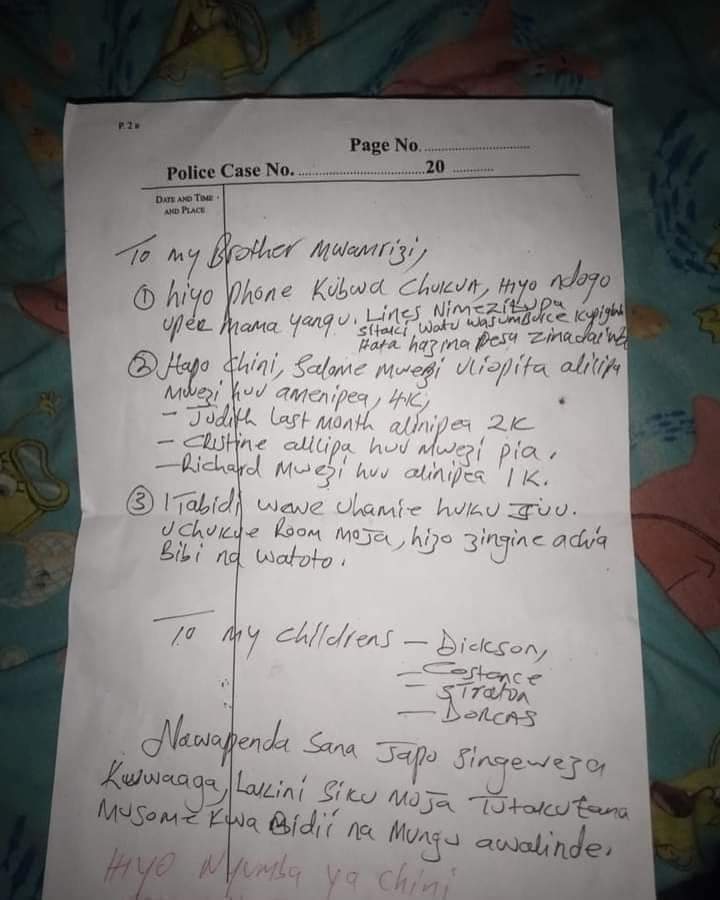 P. 2 B
Page No. ..............................
Police Case No. ....................................20 ............
DATE AND TIME
AND PLACE
To my Brother Mwamrizi,
① hiyo phone Kubwa Chukua, Hiyo ndogo
upee mama yangu. Lines Nimezitupa
sitaki watu wasumbuke kupigia
Hata hazina pesa zinadaiwa
② Hapo chini, Salome mwezi uliopita alilipa
Mwezi huu amenipea, 4K,
- Judith last month alinipea 2K
- Cristine alilipa huu mwezi pia.
- Richard Mwezi huu alinipea 1K.
③ Itabidi wewe uhamie huku Juu.
Uchukue Room Moja, hizo zingine achia
Bibi na watoto.
To my childrens - Dickson,
- Costance
- Straton
- DORCAS
Nawapenda Sana Japo singeweza
Kuwaaga, Lakini Siku Moja Tutakutana
Musome Kwa Bidii na Mungu awalinde.
Hiyo Nyumba ya chini